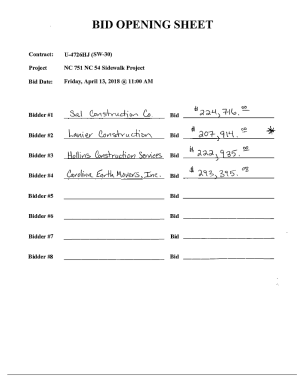 BID OPENING SHEET
Contract: U-4726HJ (SW-30)
Project NC 751 NC 54 Sidewalk Project
Bid Date: Friday, April 13, 2018 @ 11:00 AM
Bidder #1 Sal Construction Co Bid $224,716.00
Bidder #2 Lanier Construction Bid $207,914.00 *
Bidder #3 Hollins Construction Services Bid $222,935.00
Bidder #4 Carolina Earth Movers, Inc. Bid $293,395.00
Bidder #5 Bid
Bidder #6 Bid
Bidder #7 Bid
Bidder #8 Bid